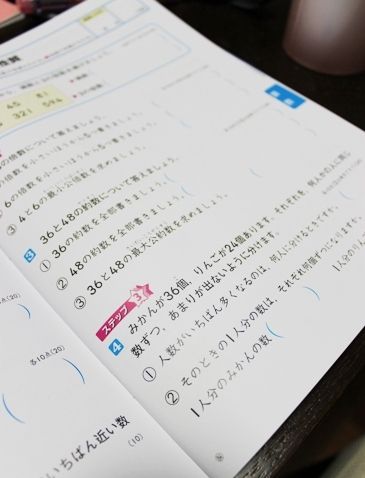 45 81
321 594
の倍数について答えましょう。
の倍数を小さいほうから5つ書きましょう。
② 6の倍数を小さいほうから5つ書きましょう。
③ 4と6の最小公倍数を求めましょう。
3 36と48の約数について答えましょう。
① 36の約数を全部書きましょう。
② 48の約数を全部書きましょう。
③ 36と48の最大公約数を求めましょう。
ステップ3
4 みかんが36個、りんごが24個あります。それぞれを、何人かの人に同じ
数ずつ、あまりが出ないように分けます。
① 人数がいちばん多くなるのは、何人に分けるときですか。
② そのときの1人分の数は、それぞれ何個ずつになりますか。
1人分のみかんの数( ) 1人分のり
点(20)
各10点(20)
いちばん近い数
(10)